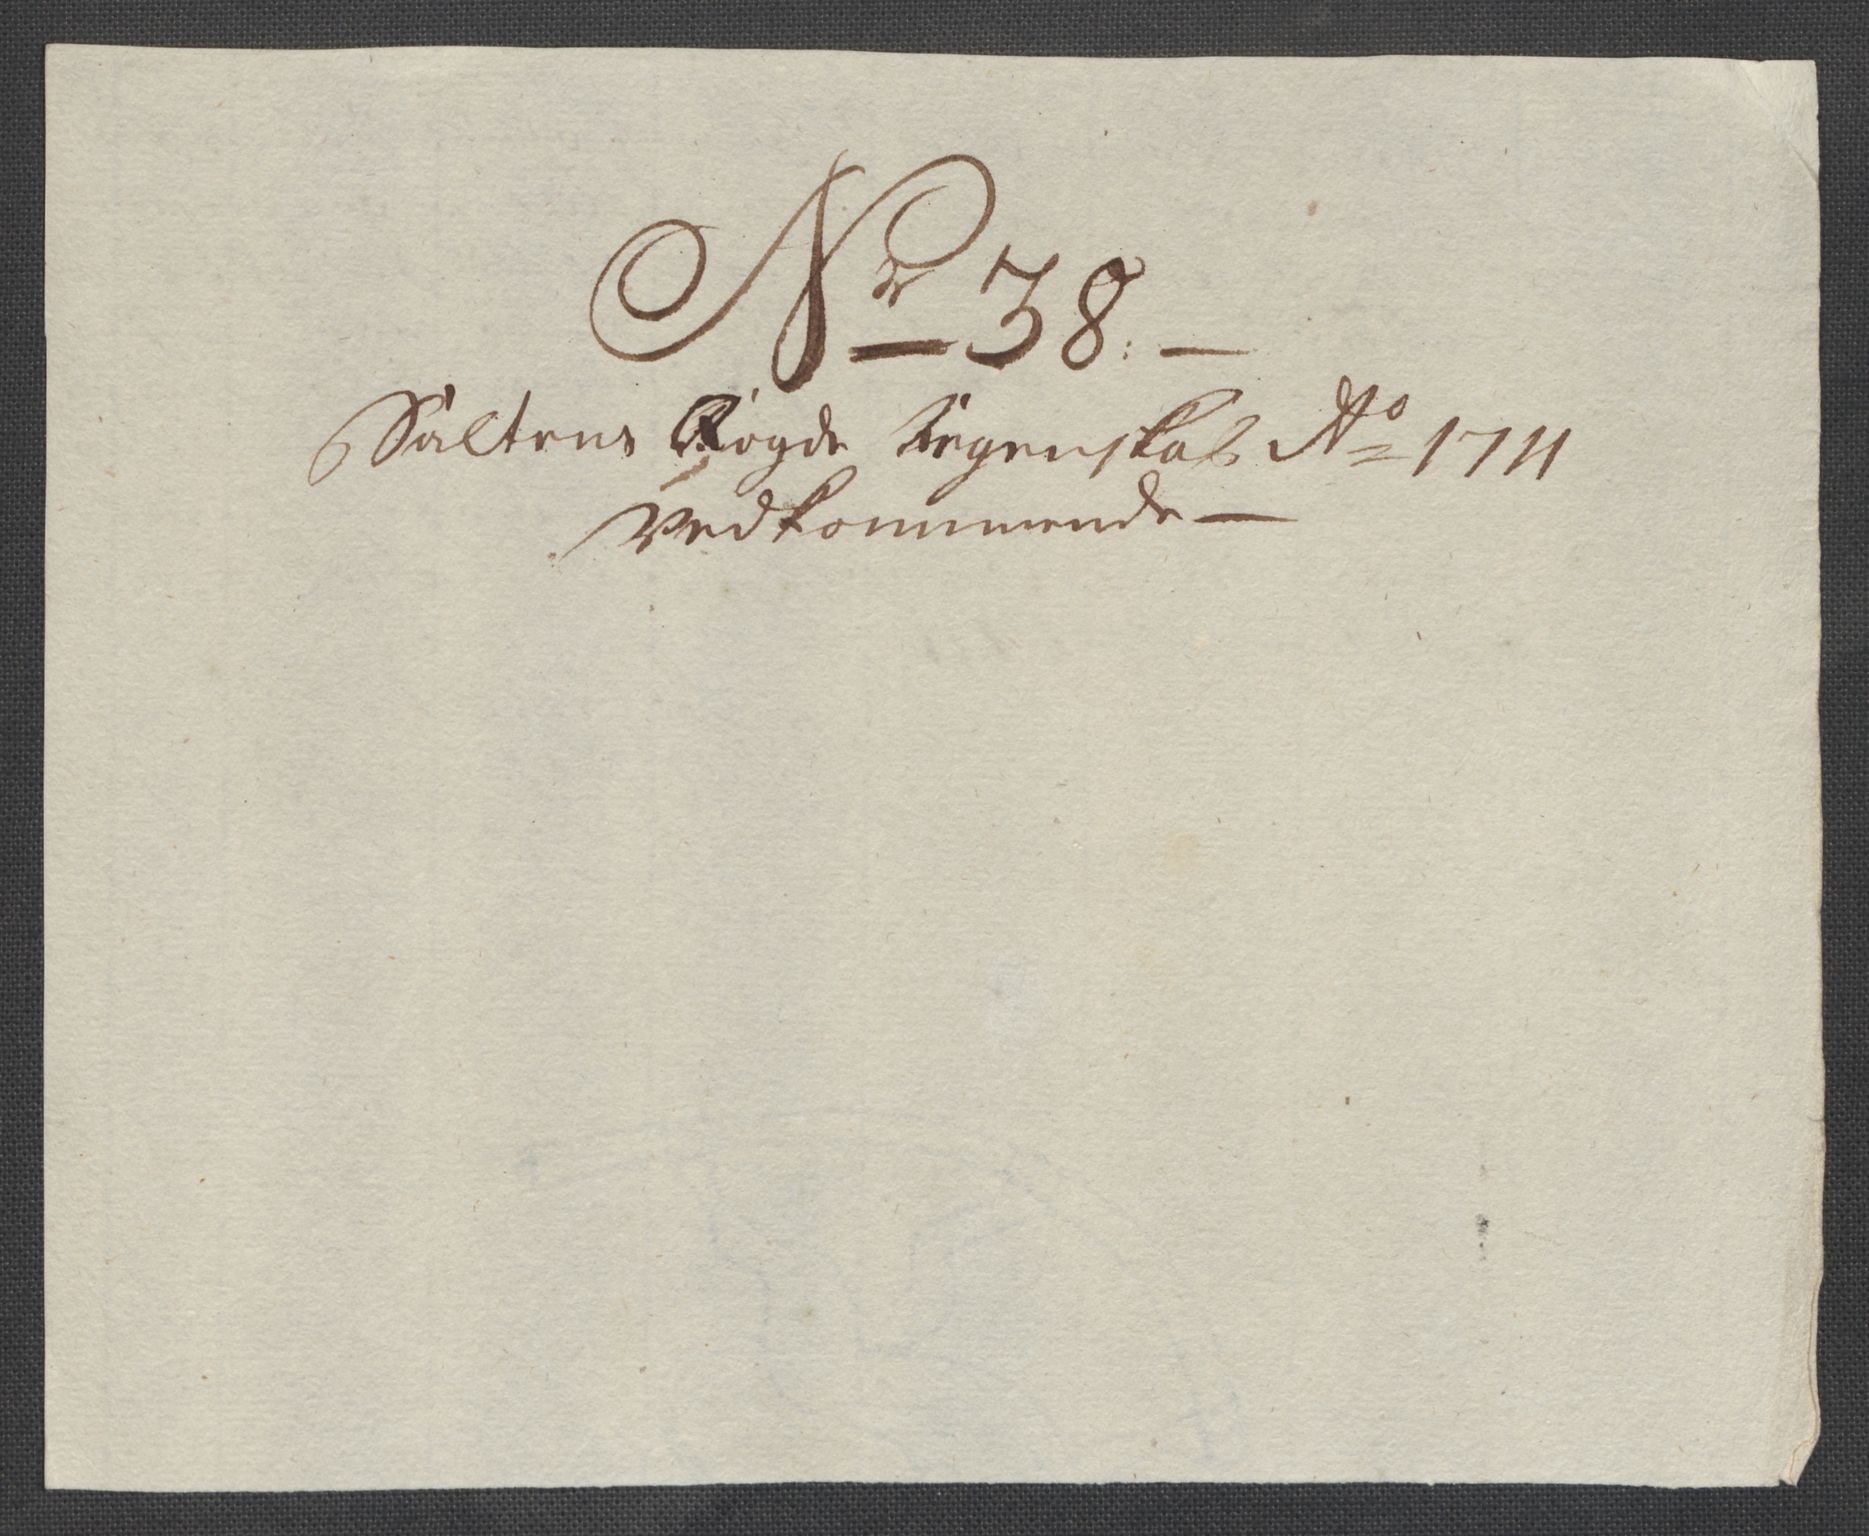 Nr 38. —
Saltens Fogde Regenskab Ao 1711
Vedkommende —